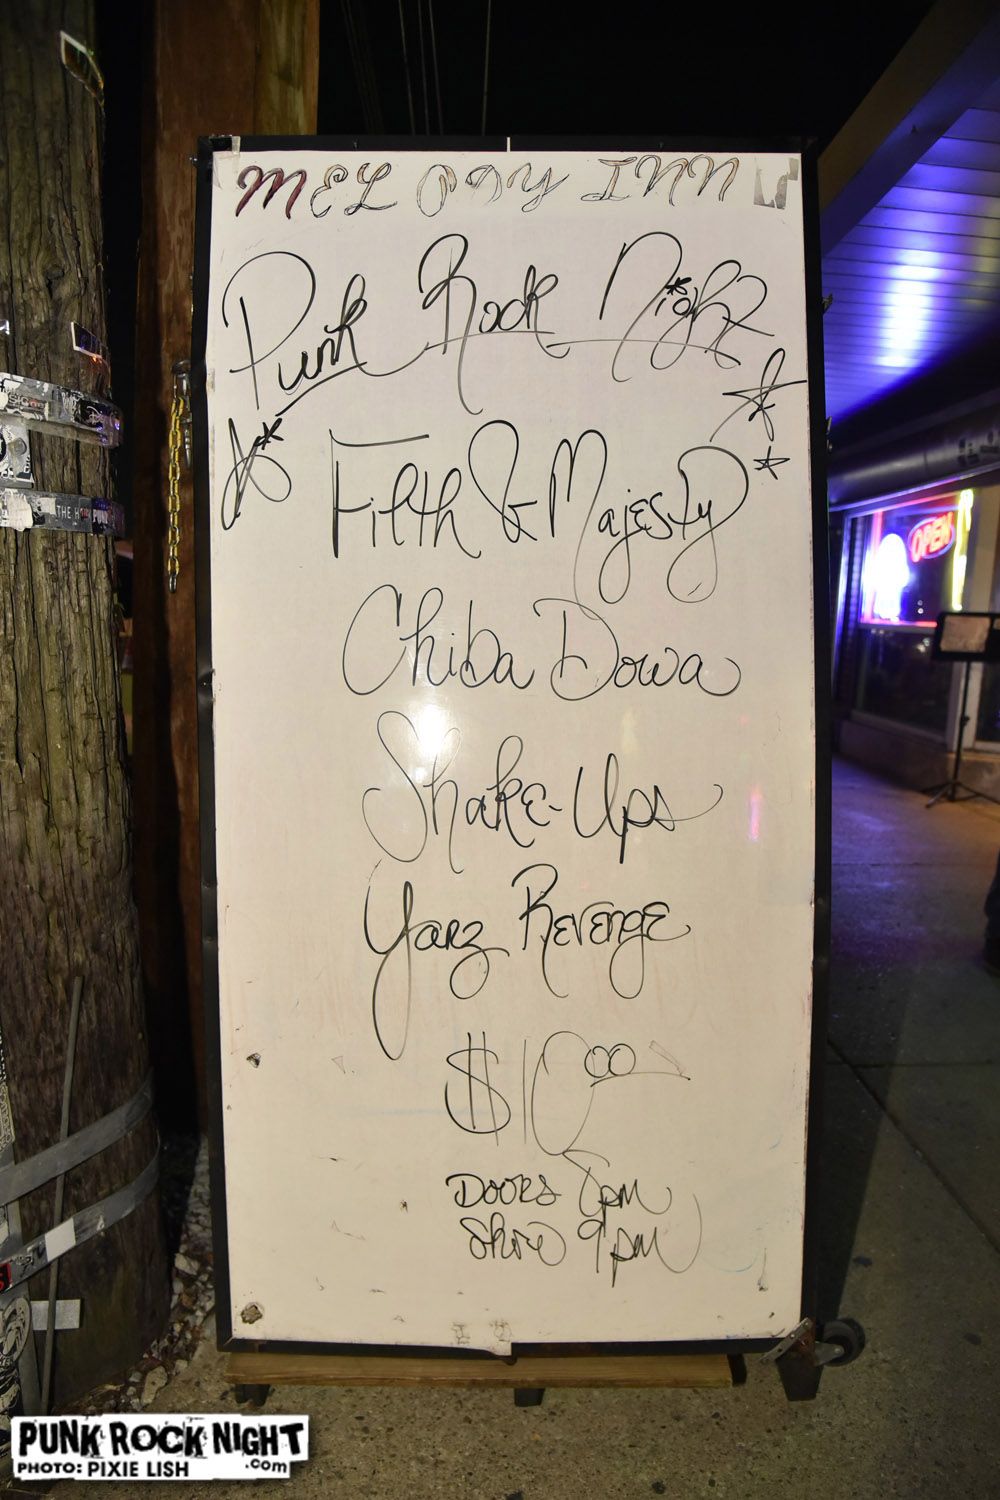 MELODY INN
Punk Rock Night
Filth & Majesty
Chiba Dowa
Shake-Ups
Yarz Revenge
$10.00
DOORS 8pm
Show 9pm
OPEN
PUNK ROCK NIGHT
.com
PHOTO: PIXIE LISH